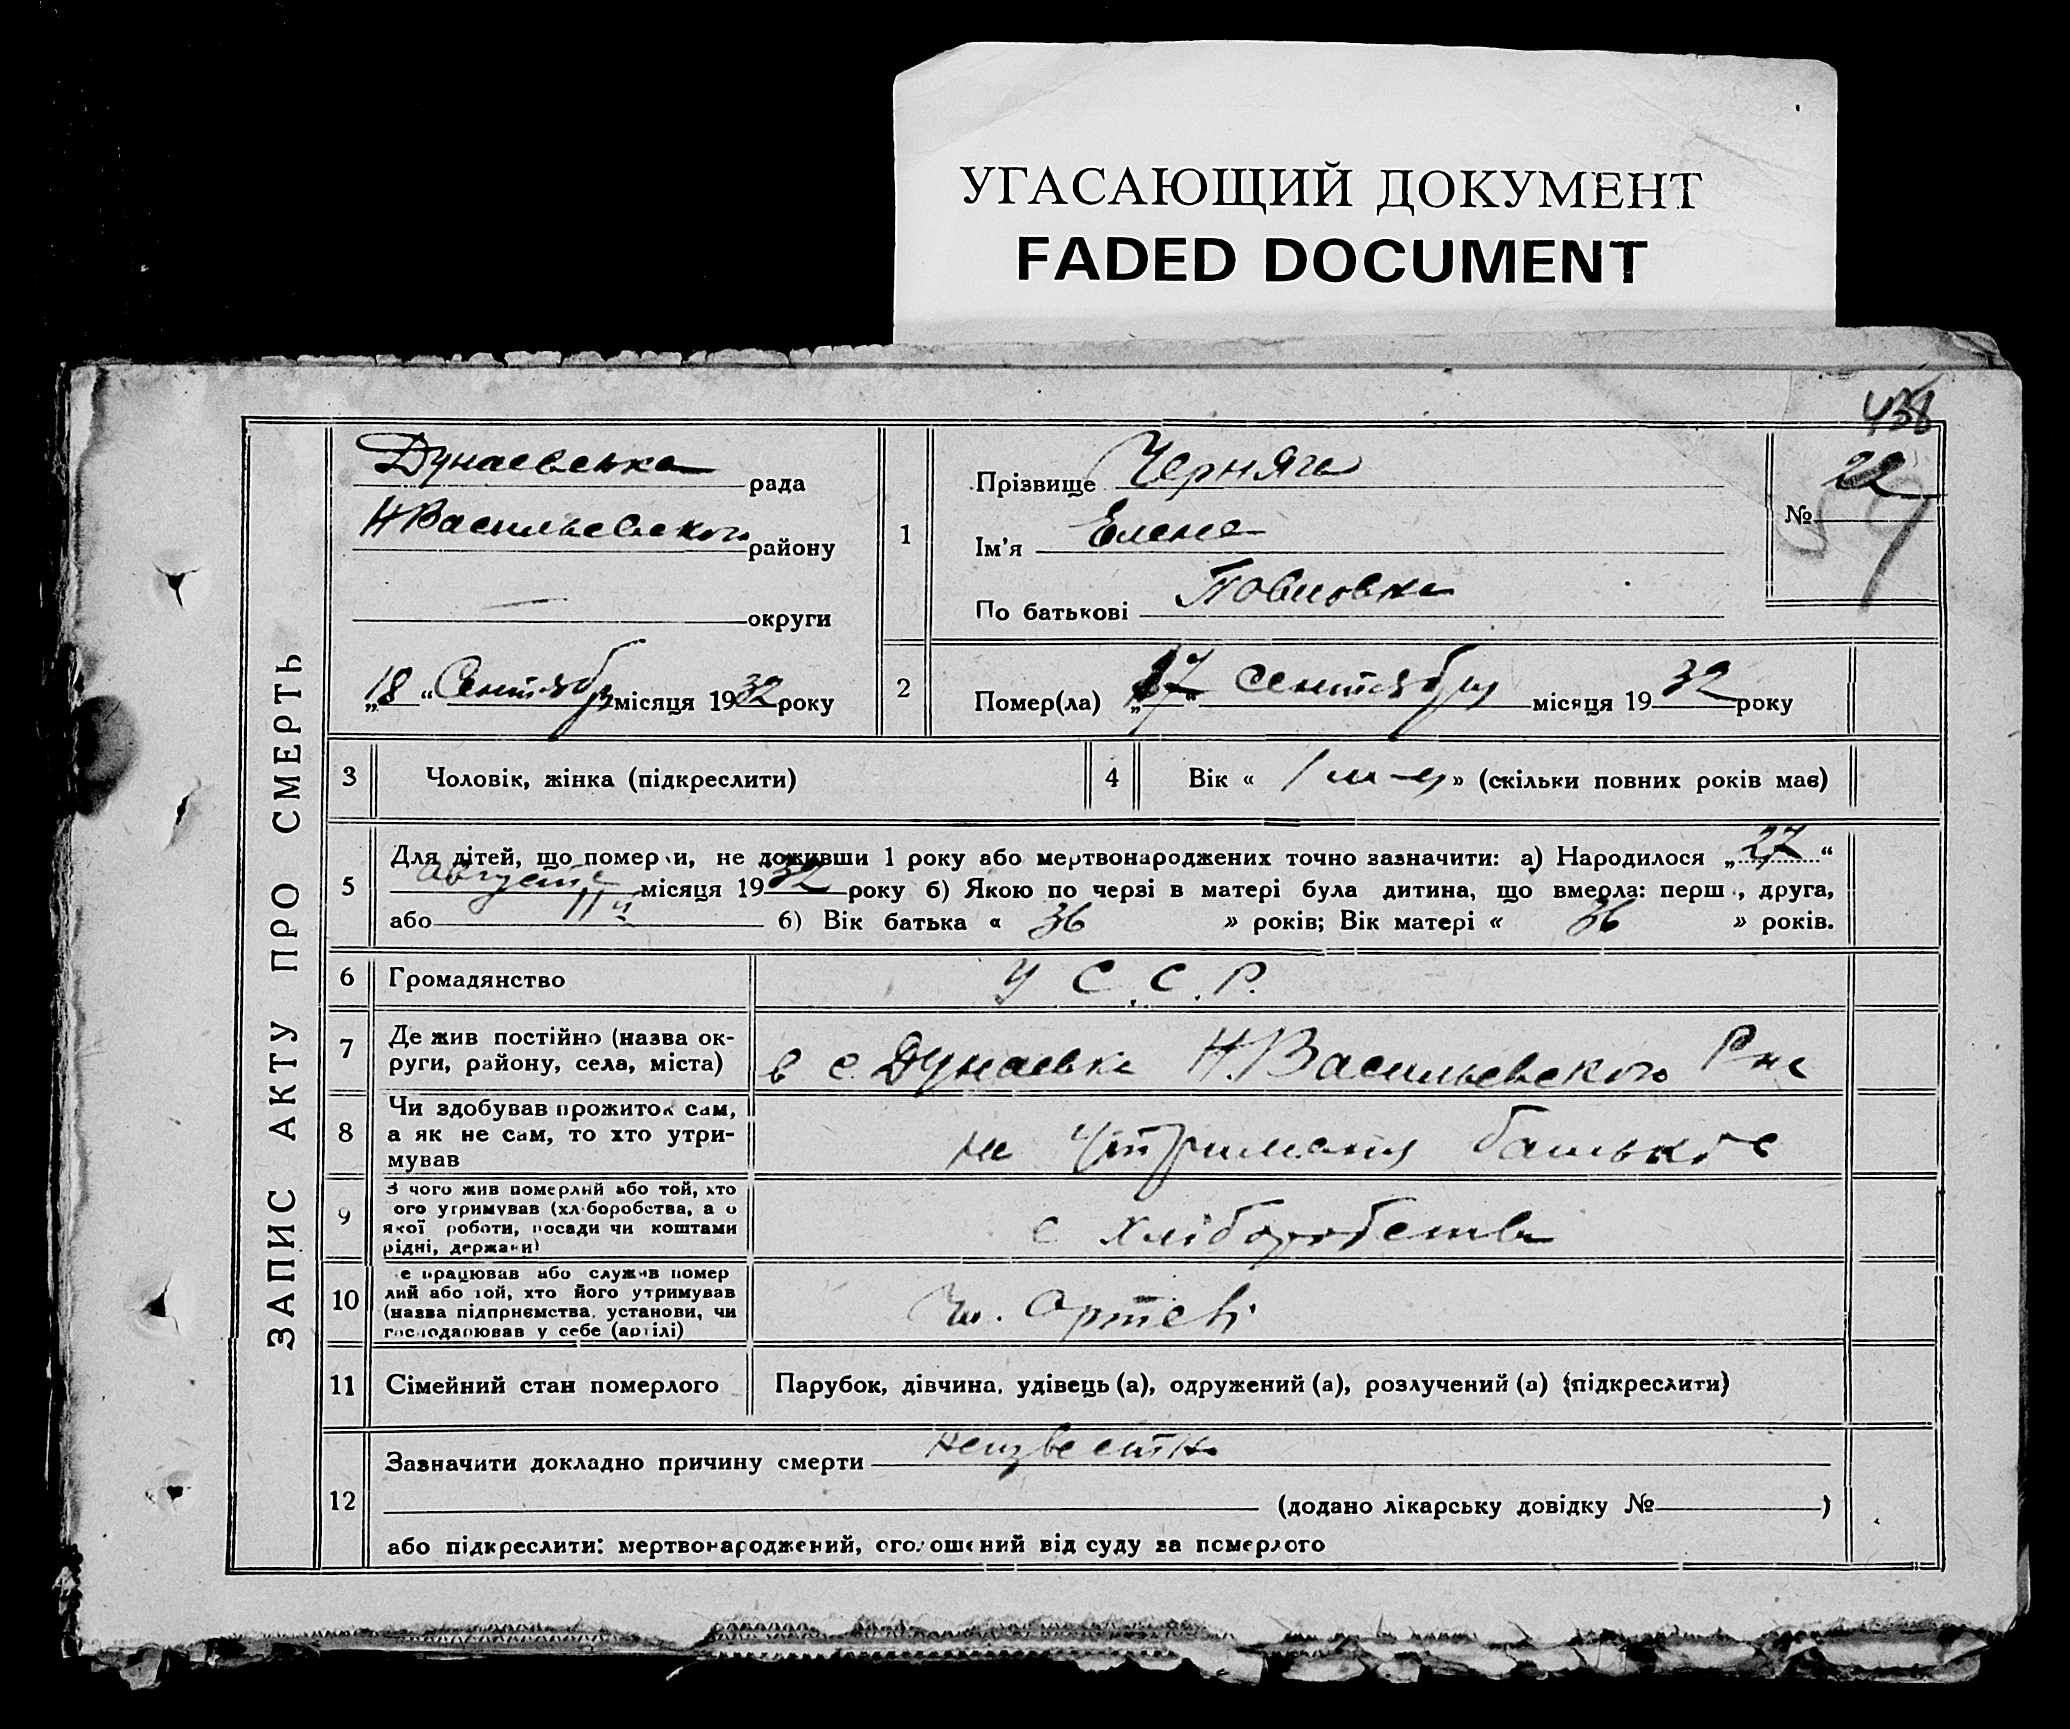 УГАСАЮЩИЙ ДОКУМЕНТ
FADED DOCUMENT
438
ЗАПИС АКТУ ПРО СМЕРТЬ
Дунаевська рада
Н Васильевского району
округи
„18“ Сентября місяця 1932 року
1
Прізвище Черняга
Ім'я Елена
По батькові
№ 22
59
2
Помер(ла) „17“ Сентября місяця 1932 року
3 Чоловік, жінка (підкреслити)
4 Вік « 1 м-ц » (скільки повних років має)
5 Для дітей, що померли, не доживши 1 року або мертвонароджених точно зазначити: а) Народилося „27“
Августа місяця 1932 року б) Якою по черзі в матері була дитина, що вмерла: перш, друга,
або б) Вік батька « 36 » років; Вік матері « 36 » років.
6 Громадянство У С.С.Р.
7 Де жив постійно (назва ок-
руги, району, села, міста) в с. Дунаевка Н.Васильевского Р на
8 Чи здобував прожиток сам,
а як не сам, то хто утри-
мував на утриманя батьків
9 З чого жив померлий або той, хто
ого утримував (хліборобства, а о
якої роботи, посади чи коштами
рідні, держави) с хліборобства
10 е працював або служив помер
лий або той, хто його утримував
(назва підприємства, установи, чи
господарював у себе (артілі) Чл. Артелі
11 Сімейний стан померлого Парубок, дівчина, удівець (а), одружений (а), розлучений (а) (підкреслити)
12 Зазначити докладно причину смерти неизвестна
(додано лікарську довідку № )
або підкреслити: мертвонароджений, оголошений від суду за померлого